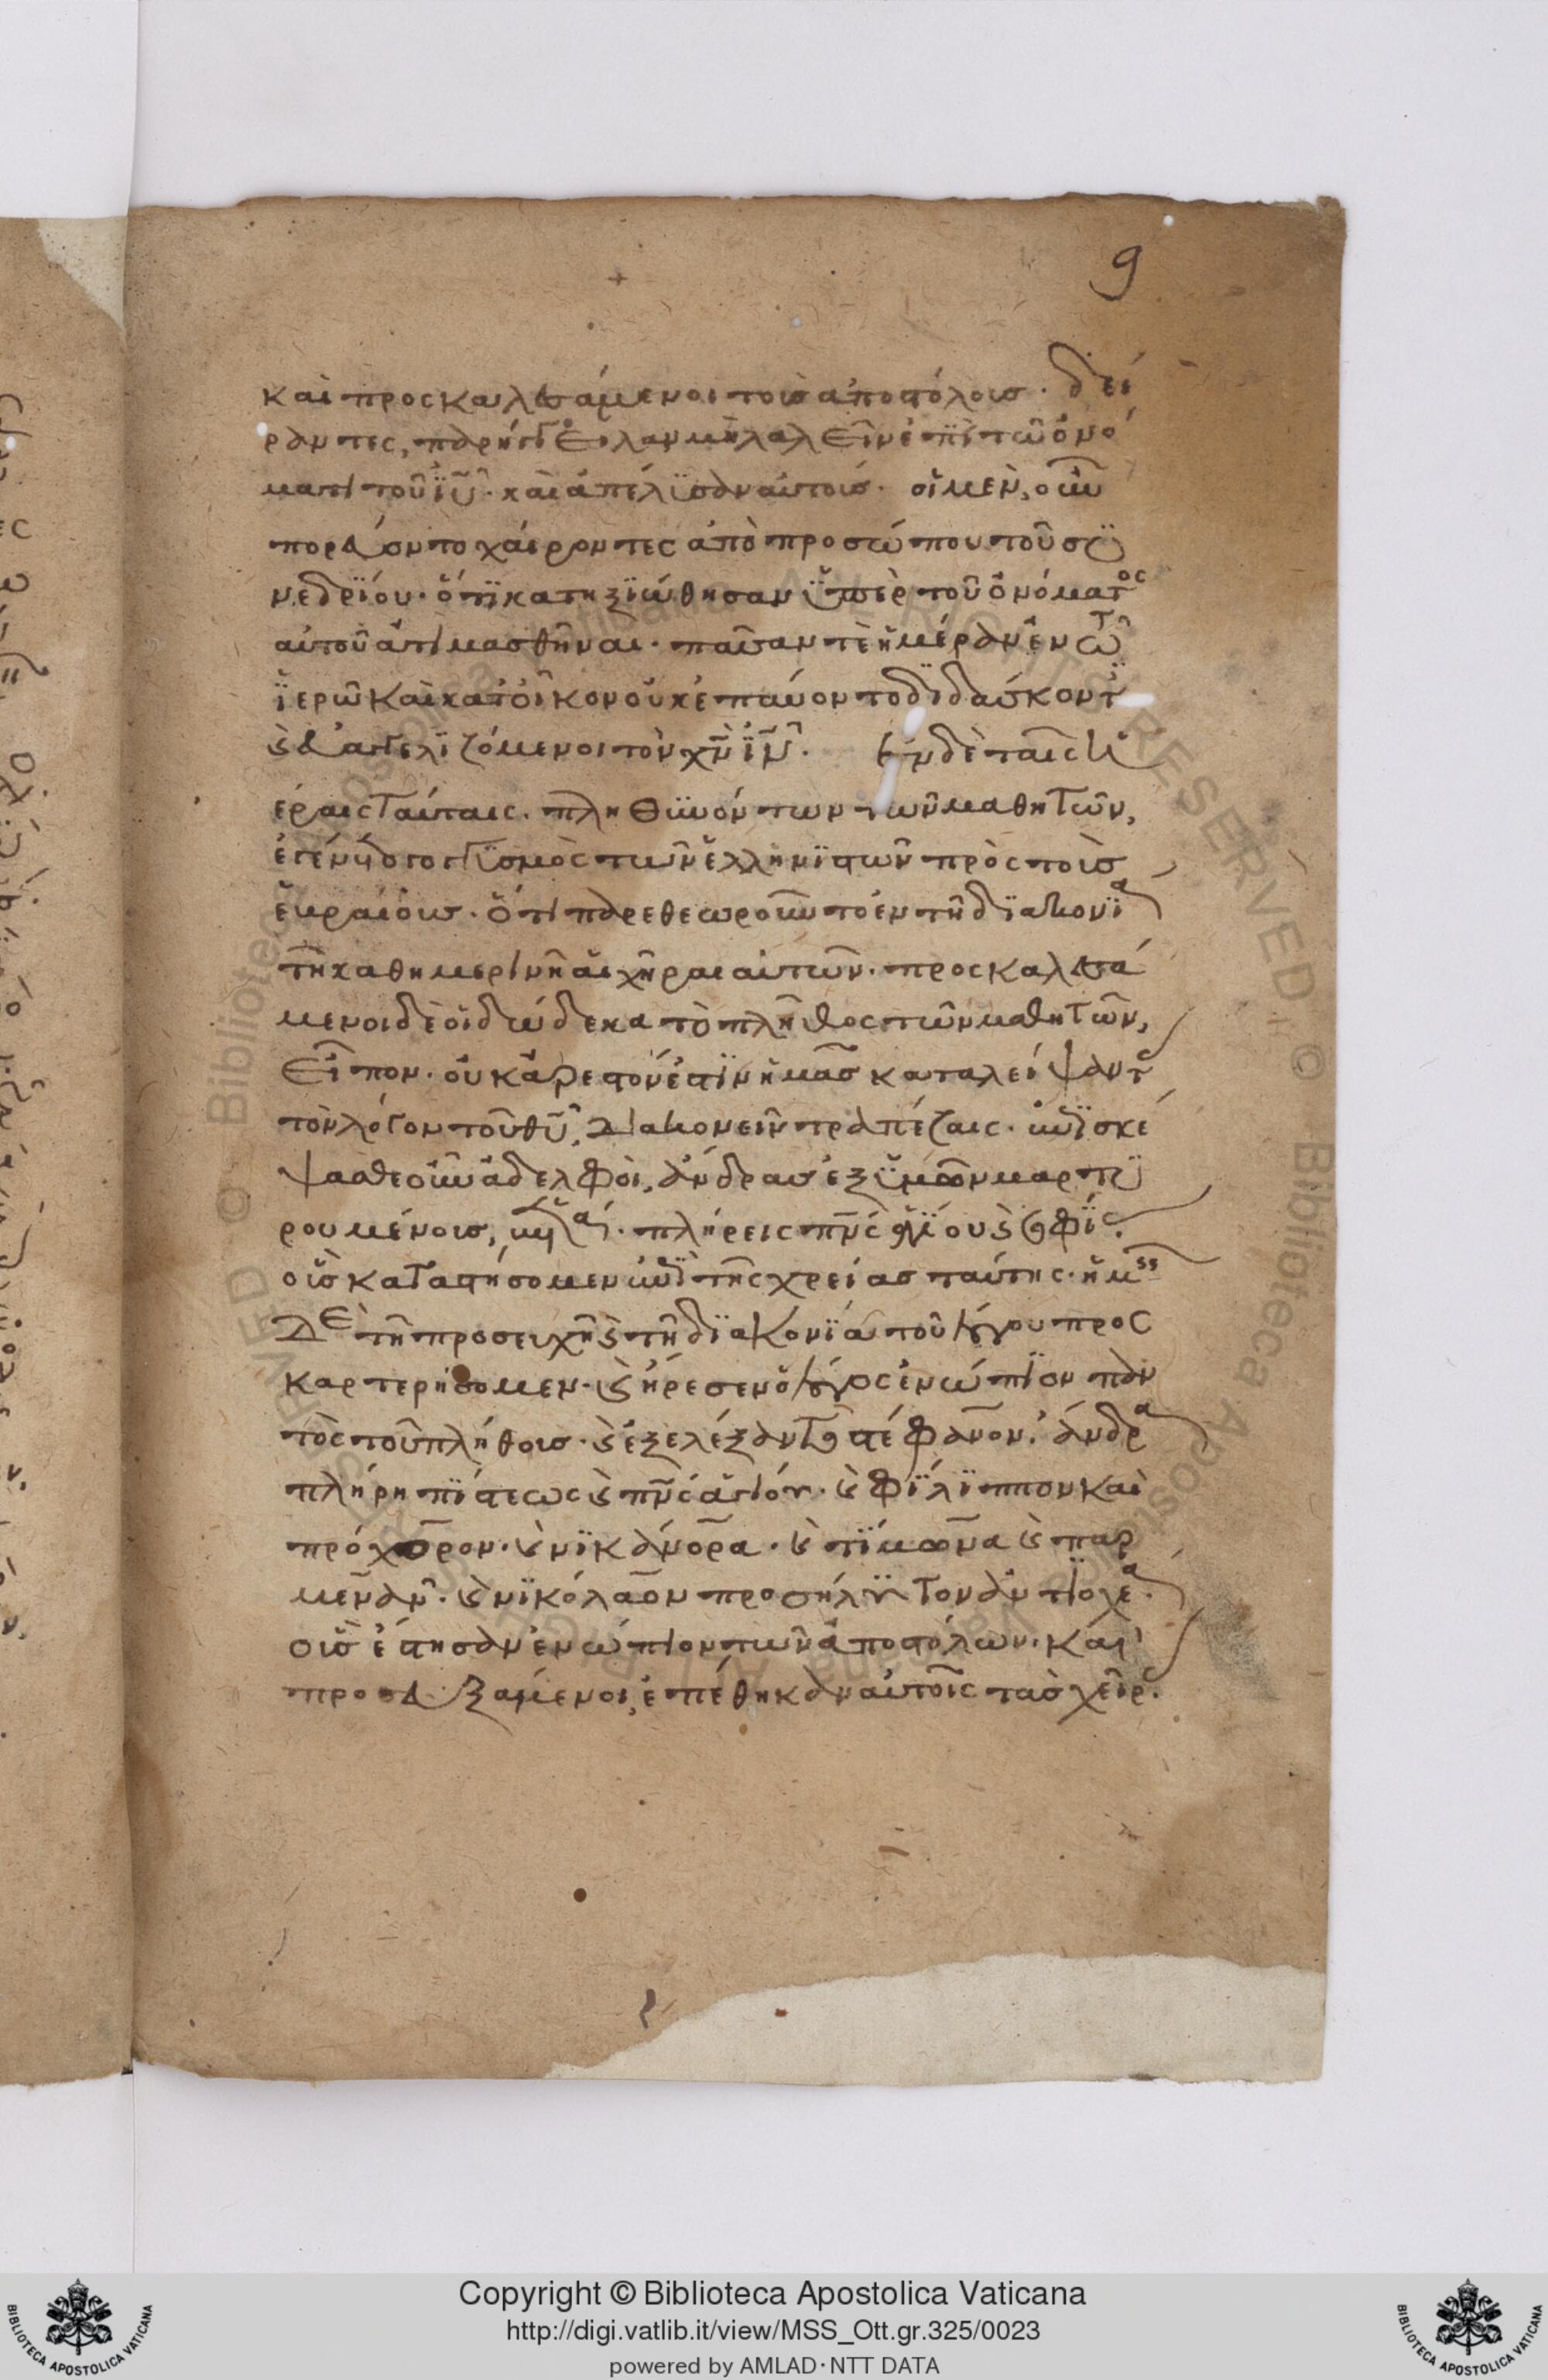 9
καὶ προσκαλεσάμενοι τοὺς ἀποστόλους· δεί
ραντες, παρήγγειλαν μὴ λαλεῖν ἐπὶ τῶ ὀνό
ματι τοῦ ἰῦ· καὶ ἀπέλϋσαν αὐτούς· οἱ μὲν, οὖν
ἐπορεύοντο χαίροντες ἀπὸ προσώπου τοῦ συ
νεδρΐου· ὅτι κατηξϊώθησαν ὑπὲρ τοῦ ὀνόματος
αὐτοῦ ἀτιμασθῆναι· πᾶσαν τὲ ἡμέραν ἐν τῶ
ἱερῶ καὶ κατ' οἶκον οὐκ ἐπαύοντο δϊδάσκοντ
ϗ εὐαγγελϊζόμενοι τὸν χν ἰν· Ἐν δὲ ταῖς ἡμ
έραις ταύταις· πληθϋνόντων τῶν μαθητῶν,
ἐγένετο γογγϋσμὸς τῶν ἑλληνϊστῶν πρὸς τοὺς
ἑβραίους· ὅτι παρεθεωροῦντο ἐν τῆ δϊακονία
τῆ καθημερινῆ αἱ χῆραι αὐτῶν· προσκαλεσά
μενοι δὲ οἱ δώδεκα τὸ πλῆθος τῶν μαθητῶν,
εἶπον· οὐκ ἀρεστόν ἐστϊν ἡμᾶς καταλείψαντ
τὸν λόγον τοῦ θῦ, διακονεῖν τραπέζαις· ἐπϊσκέ
ψασθε οὖν ἀδελφοὶ, ἄνδρας ἐξ ὑμῶν μαρτυ
ρουμένους, ἑπτά· πλήρεις πνς ἁγίου ϗ σοφΐς·
οὓς καταστήσομεν ἐπὶ τῆς χρείας ταύτης· ἡμς
δὲ τῆ προσευχῆ ϗ τῆ δϊακονϊα τοῦ λόγου προσ
καρτερήσομεν· ϗ ἤρεσεν ὁ λόγος ἐνώπϊον παν
τὸς τοῦ πλήθους· ϗ ἐξελέξαντο στέφανον· ἄνδρα
πλήρη πίστεως ϗ πνς ἁγίου· ϗ φίλϊππον καὶ
πρόχορον· ϗ νϊκάνορα· ϗ τϊμωνα ϗ παρ
μενᾶν· ϗ νϊκόλαον προσήλυτον ἀντϊοχέα·
οὓς ἔστησαν ἐνώπιον τῶν ἀποστόλων· καὶ
προσευξάμενοι, ἐπέθηκαν αὐτοῖς τὰς χεῖρ·
Copyright © Biblioteca Apostolica Vaticana
http://digi.vatlib.it/view/MSS_Ott.gr.325/0023
powered by AMLAD·NTT DATA